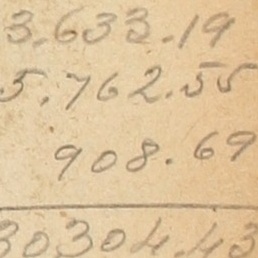 3.633.19
5.762.55
908.69
30304.43